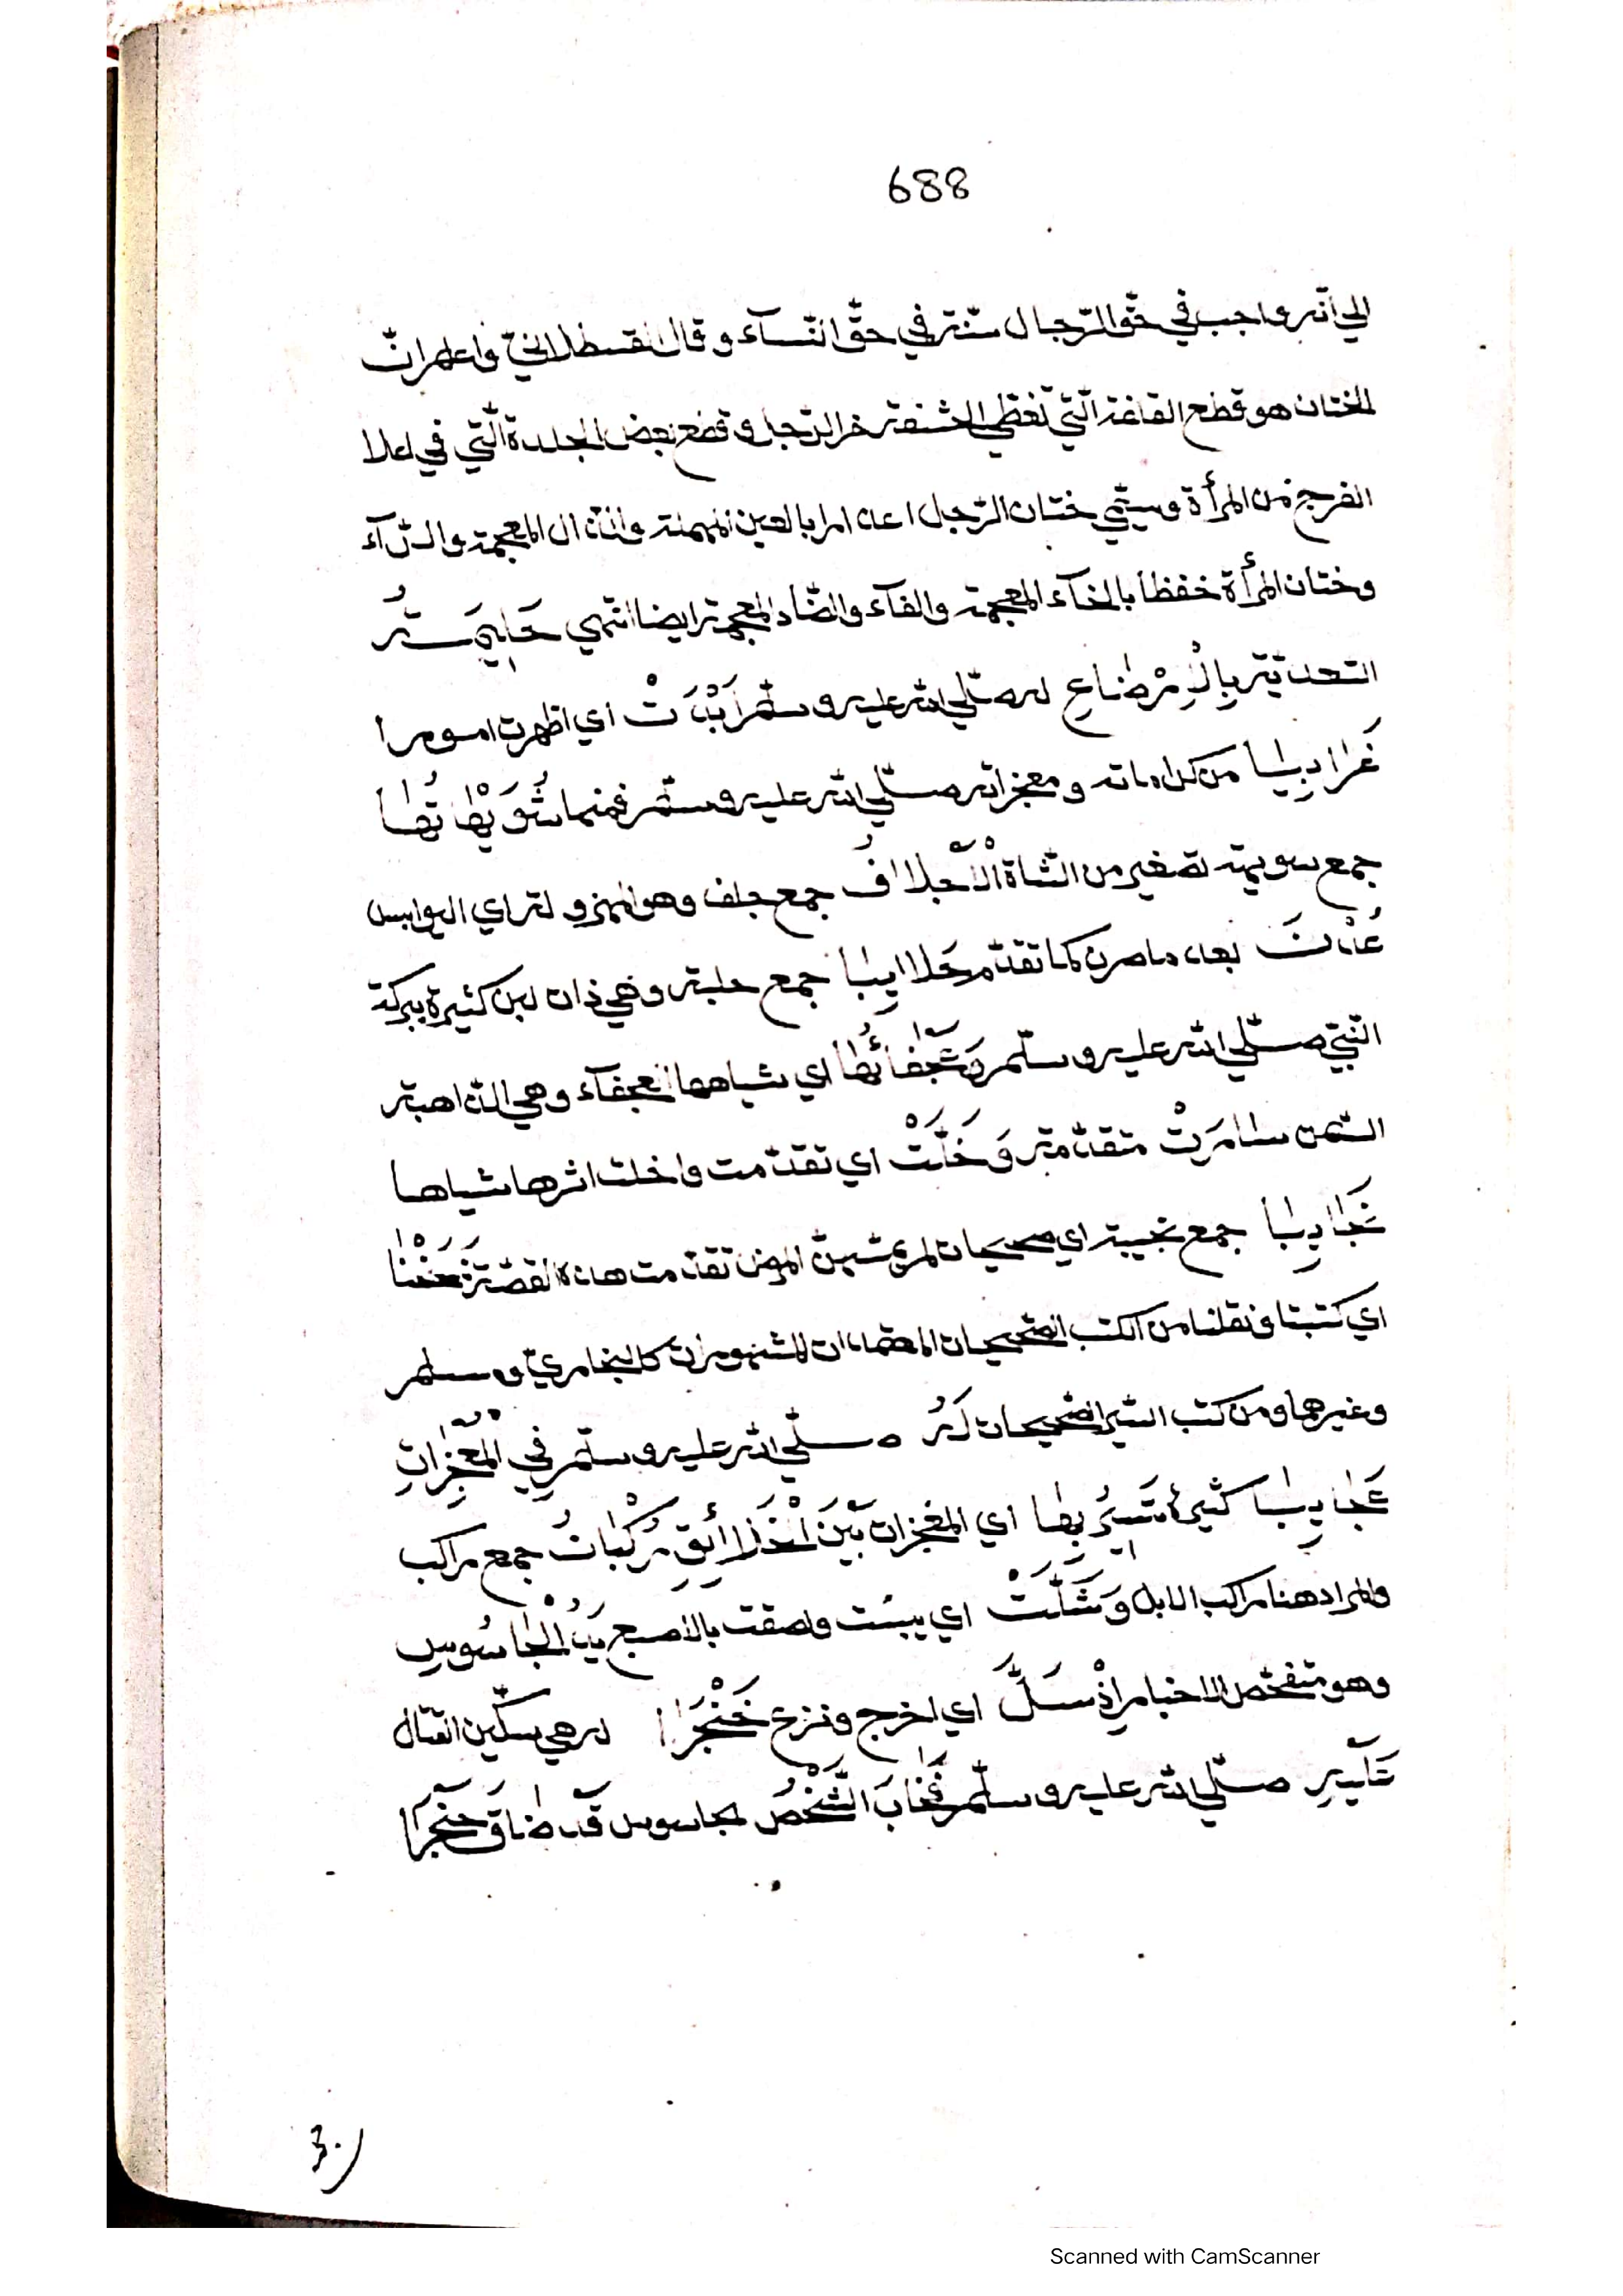 688
الي أنه واجب في حق الرّجال سنّة في حقّ النّسآء و قال القسطلاني واعلم انّ
الختان هو قطع القلفة الّتي تغطي الحشفة من الرّجل و قطع بعض الجلدة الّتي في اعلا
الفرج من المرأة ويسمّي ختان الرّجل اعذارا بالعين المهملة والذال المعجمة والرّآء
وختان المرأة خفظا بالخآء المعجمة والفآء والضّاد المعجمة ايضا انتهي حَلِيمَتُهُ
السّعديّة بِالْاِرْضَاعِ له صلّي الله عليه وسلّم اَبْدَتْ اي اظهرت امورا
غَرَايِبًا من كراماته ومعجزاته صلّي الله عليه وسلّم فمنها شُوَيْهَاتُهَا
جمع شويهة تصغير من الشاة الْاَجْلَافُ جمع جلف وهو المهزولة اي اليوابس
عُدْنَ بعد ما صرن كما تقدّم حَلَايِبًا جمع حلبة وهي ذات لبن كثيرة ببركة
النّبيّ صلّي الله عليه وسلّم وَعَجْفَائُهَا اي شياهها العجفآء وهي الذّاهبة
السّمن سَامَرَتْ متقدّمة وَخَلَّتْ اي تقدّمت واخلت اثرها شياها
نَجَايِبًا جمع نجيبة اي صحيحات لم يمسّهنّ المرض تقدّمت هذه القصّة
اي كتبنا ونقلنا من الكتب الصّحيحات المعتمدات المشهورات كالبخاريّ ومسلم
وغيرهما ومن كتب السّير الصّحيحات لَهُ صلّي الله عليه وسلّم فِي الْمُعْجِزَاتِ
عَجَايِبًا كثيرة تَسِيرُ بِهَا اي المعجزات بَيْنَ الْخَلَائِقِ مَرْكَبَاتُ جمع مراكب
والمراد هنا مراكب الابل وَشَلَّتْ اي يبست ولصقت بالأصبع يَدُ الْجَاسُوسِ
وهو متفحّص الاخبار اِذْ سَلَّ اي اخرج ونزع خَنْجَرًا اهي سكّين القتال
عَلَيْهِ صلّي الله عليه وسلّم فَخَابَ الشَّخْصُ الجاسوس قَد ضَاقَ حَنْجَرًا
Scanned with CamScanner